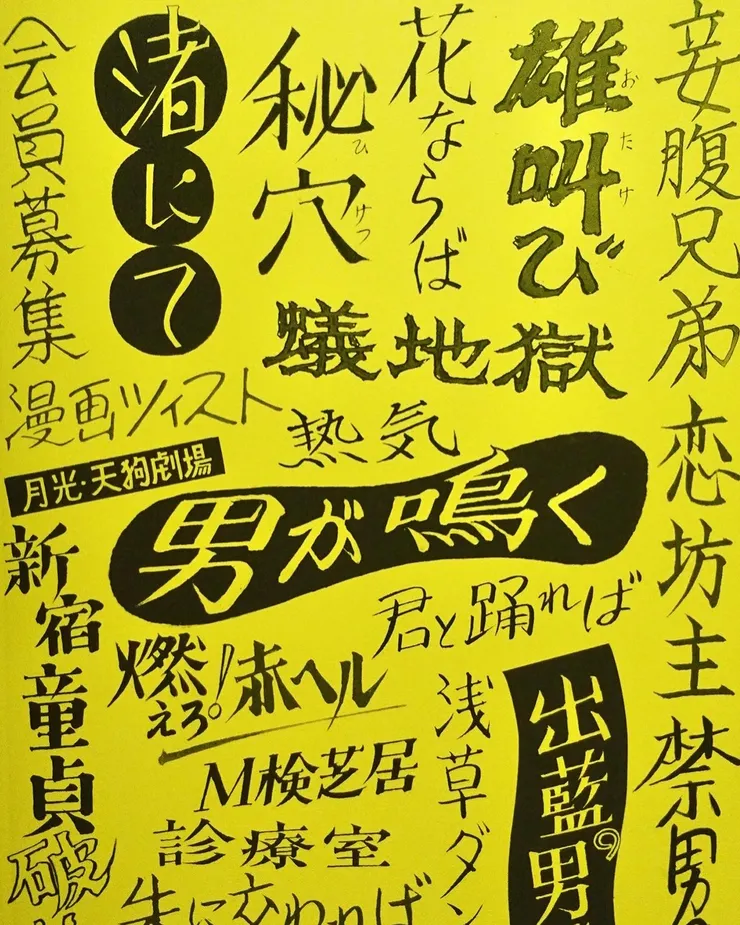 妾腹兄弟
恋坊主
禁男
雄叫び
おたけ
花ならば
秘穴
ひけつ
渚にて
会員募集
蟻地獄
漫画ツイスト
熱気
月光・天狗劇場
男が鳴く
君と踊れば
新宿童貞
燃えろ!赤ヘル
M検芝居
診療室
浅草ダン
出藍の男
朱に交われば